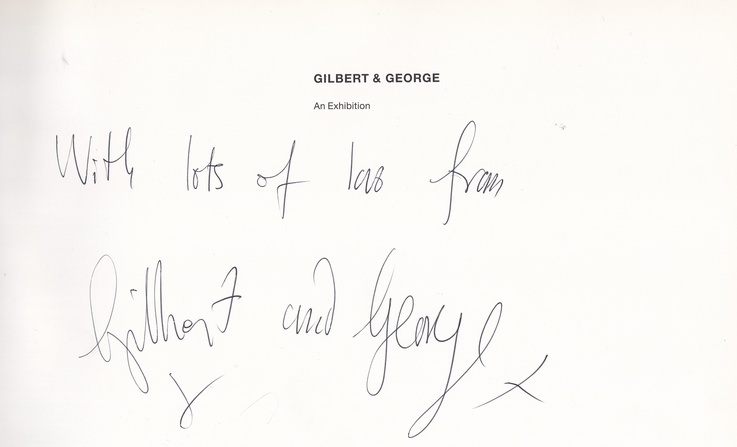 GILBERT & GEORGE
An Exhibition
With lots of love from
Gilbert and George
x x